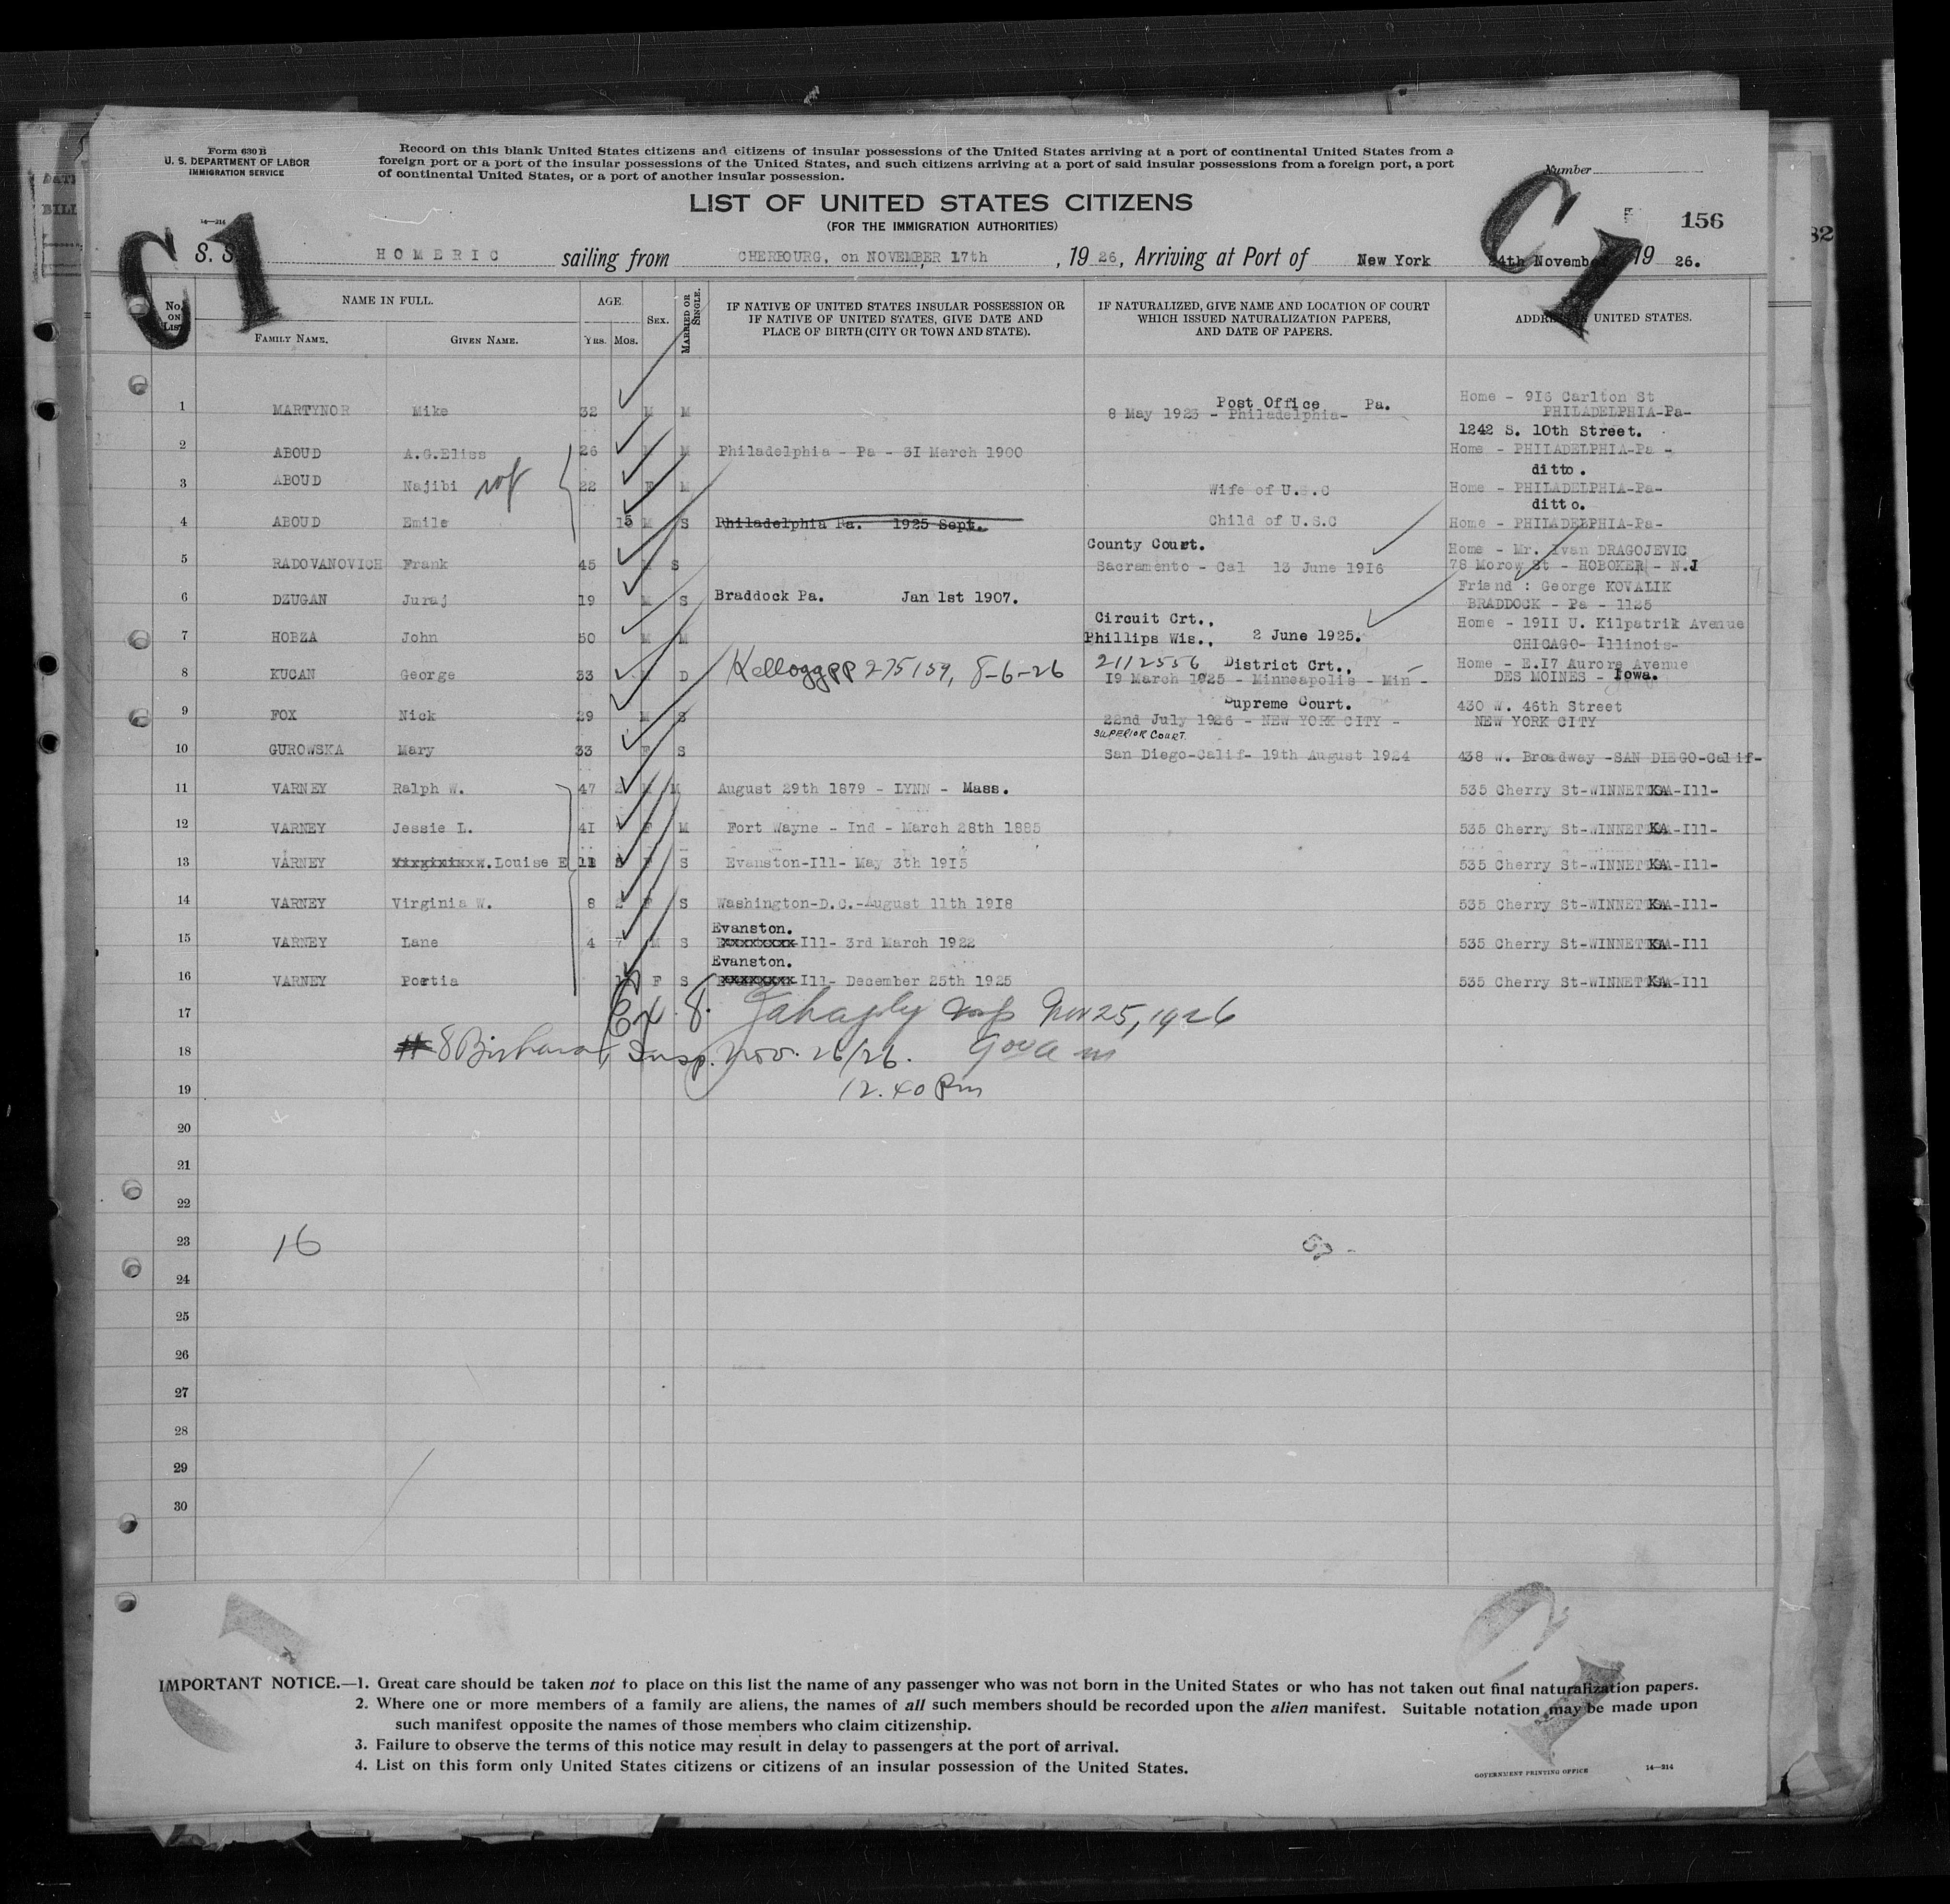 Form 630 B
U. S. DEPARTMENT OF LABOR
IMMIGRATION SERVICE
14—214
Record on this blank United States citizens and citizens of insular possessions of the United States arriving at a port of continental United States from a
foreign port or a port of the insular possessions of the United States, and such citizens arriving at a port of said insular possessions from a foreign port, a port
of continental United States, or a port of another insular possession.
Number
LIST OF UNITED STATES CITIZENS
(FOR THE IMMIGRATION AUTHORITIES)
156
82
C1
C1
S. S. HOMERIC sailing from CHERBOURG, on NOVEMBER 17th, 1926, Arriving at Port of New York 24th November 1926.
No. ON LIST
NAME IN FULL.
FAMILY NAME.
GIVEN NAME.
AGE.
YRS. MOS.
SEX.
MARRIED OR SINGLE.
IF NATIVE OF UNITED STATES INSULAR POSSESSION OR
IF NATIVE OF UNITED STATES, GIVE DATE AND
PLACE OF BIRTH (CITY OR TOWN AND STATE).
IF NATURALIZED, GIVE NAME AND LOCATION OF COURT
WHICH ISSUED NATURALIZATION PAPERS,
AND DATE OF PAPERS.
ADDRESS IN UNITED STATES.
1 MARTYNOR Mike 32 M M Post Office Pa.
8 May 1923 - Philadelphia-
Home - 9I6 Carlton St
PHILADELPHIA-Pa-
1242 S. 10th Street.
2 ABOUD A.G.Eliss 26 M M Philadelphia - Pa - 3I March 1900 Home - PHILADELPHIA-Pa -
ditto.
3 ABOUD Najibi 22 F M Wife of U.S.C Home - PHILADELPHIA-Pa-
ditto.
4 ABOUD Emile 15 M S Philadelphia Pa. 1925 Sept. Child of U.S.C Home - PHILADELPHIA-Pa-
5 RADOVANOVICH Frank 45 M S County Court.
Sacramento - Cal 13 June 19I6
Home - Mr. Ivan DRAGOJEVIC
78 Morow St - HOBOKEN - N.J
6 DZUGAN Juraj 19 M S Braddock Pa. Jan 1st 1907. Friend : George KOVALIK
BRADDOCK - Pa - 1125
7 HOBZA John 50 M M Circuit Crt.,
Phillips Wis., 2 June 1925.
Home - 19II U. Kilpatrik Avenue
CHICAGO- Illinois-
8 KUCAN George 33 D Kellogg pp 275159, 8-6-26 2112556 District Crt.,
I9 March 1925 - Minneapolis - Min -
Home - E.I7 Aurora Avenue
DES MOINES - Iowa.
9 FOX Nick 29 M S Supreme Court.
22nd July 1926 - NEW YORK CITY -
430 W. 46th Street
NEW YORK CITY
10 GUROWSKA Mary 33 F S SUPERIOR COURT.
San Diego-Calif- 19th August 1924 438 W. Broadway -SAN DIEGO-Calif-
11 VARNEY Ralph W. 47 M M August 29th 1879 - LYNN - Mass. 535 Cherry St-WINNETKA-Ill-
12 VARNEY Jessie L. 4I F M Fort Wayne - Ind - March 28th 1885 535 Cherry St-WINNETKA-Ill-
13 VARNEY Louise E 11 F S Evanston-Ill- May 3th 19I5 535 Cherry St-WINNETKA-Ill-
14 VARNEY Virginia W. 8 F S Washington-D.C.-August 11th 19I8 535 Cherry St-WINNETKA-Ill-
15 VARNEY Lane 4 7 M S Evanston.
Ill- 3rd March 1922 535 Cherry St-WINNETKA-Ill
16 VARNEY Portia F S Evanston.
Ill- December 25th 1925 535 Cherry St-WINNETKA-Ill
17 Ex. 8. Nov 25, 1926
18 #8 Insp. Nov. 26/26.
19 12.40 Pm
20
21
22
23 16
24
25
26
27
28
29
30
IMPORTANT NOTICE.—1. Great care should be taken not to place on this list the name of any passenger who was not born in the United States or who has not taken out final naturalization papers.
2. Where one or more members of a family are aliens, the names of all such members should be recorded upon the alien manifest. Suitable notation may be made upon
such manifest opposite the names of those members who claim citizenship.
3. Failure to observe the terms of this notice may result in delay to passengers at the port of arrival.
4. List on this form only United States citizens or citizens of an insular possession of the United States.
GOVERNMENT PRINTING OFFICE 14—214